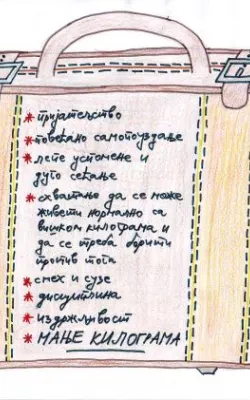 * пријатељство
* повећано самопоуздање
* лепе успомене и
дуго сећање
* схватање да се може
живети нормално са
вишком килограма и
да се треба борити
против тога
* смех и сузе
* дисциплина
* издржљивост
* МАЊЕ КИЛОГРАМА